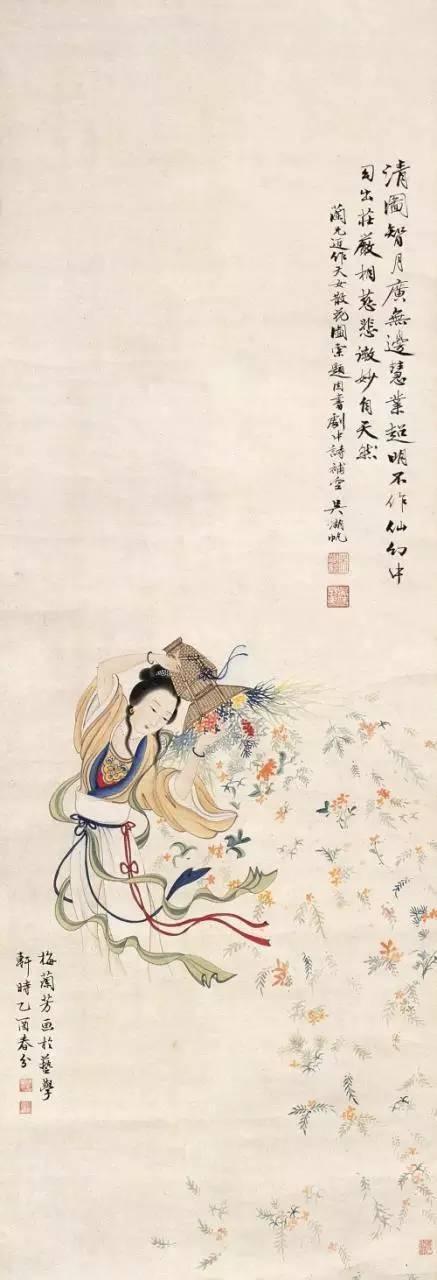 清圓智月廣無邊慧業超明不作仙幻中
幻出莊嚴相慈悲微妙自天然
蘭兄近作天女散花圖索題因書劇中詩補空 吳湖帆
梅蘭芳画於藝學
軒時乙酉春分